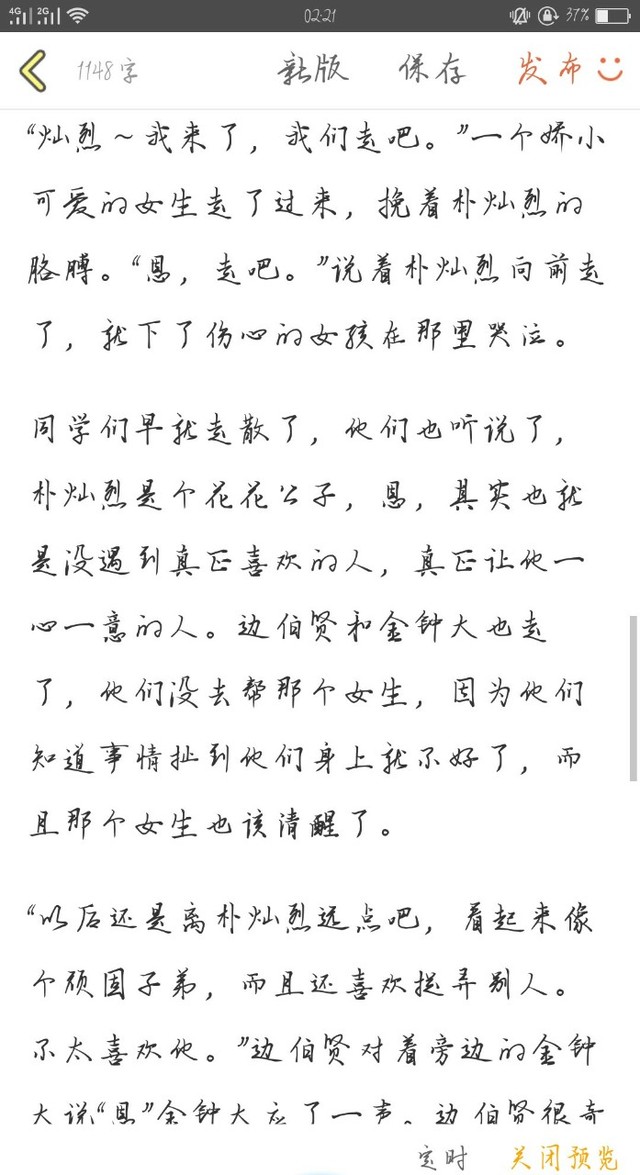 4G 2G 02:21 37%
1148字 新版 保存 发布
“灿烈～我来了，我们走吧。”一个娇小
可爱的女生走了过来，挽着朴灿烈的
胳膊。“恩，走吧。”说着朴灿烈向前走
了，就下了伤心的女孩在那里哭泣。
同学们早就走散了，他们也听说了，
朴灿烈是个花花公子，恩，其实也就
是没遇到真正喜欢的人，真正让他一
心一意的人。边伯贤和金钟大也走
了，他们没去帮那个女生，因为他们
知道事情扯到他们身上就不好了，而
且那个女生也该清醒了。
“以后还是离朴灿烈远点吧，看起来像
个顽固子弟，而且还喜欢捉弄别人。
不太喜欢他。”边伯贤对着旁边的金钟
大说“恩”金钟大应了一声。边伯贤很奇
定时 关闭预览